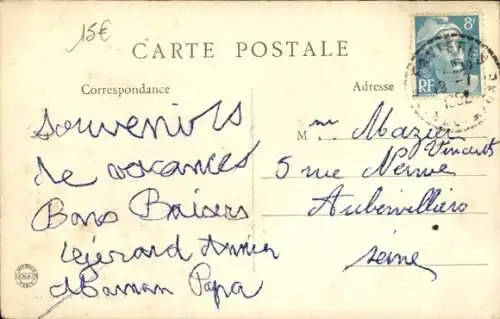 15€
CARTE POSTALE
8F
RF
1952
Correspondance
Adresse
Souvenirs
de vacances
Bons Baisers
Gérard
Maman Papa
Mme Mazier
Vincent
5 rue
Aubervilliers
Seine